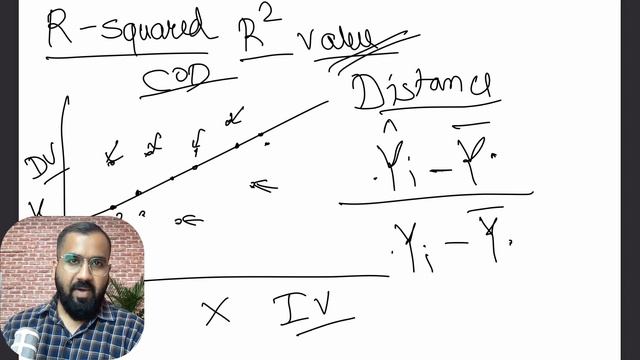 R-squared R² value
COD
Distance
DV
Ŷi - Y̅
Yi - Y̅
X IV